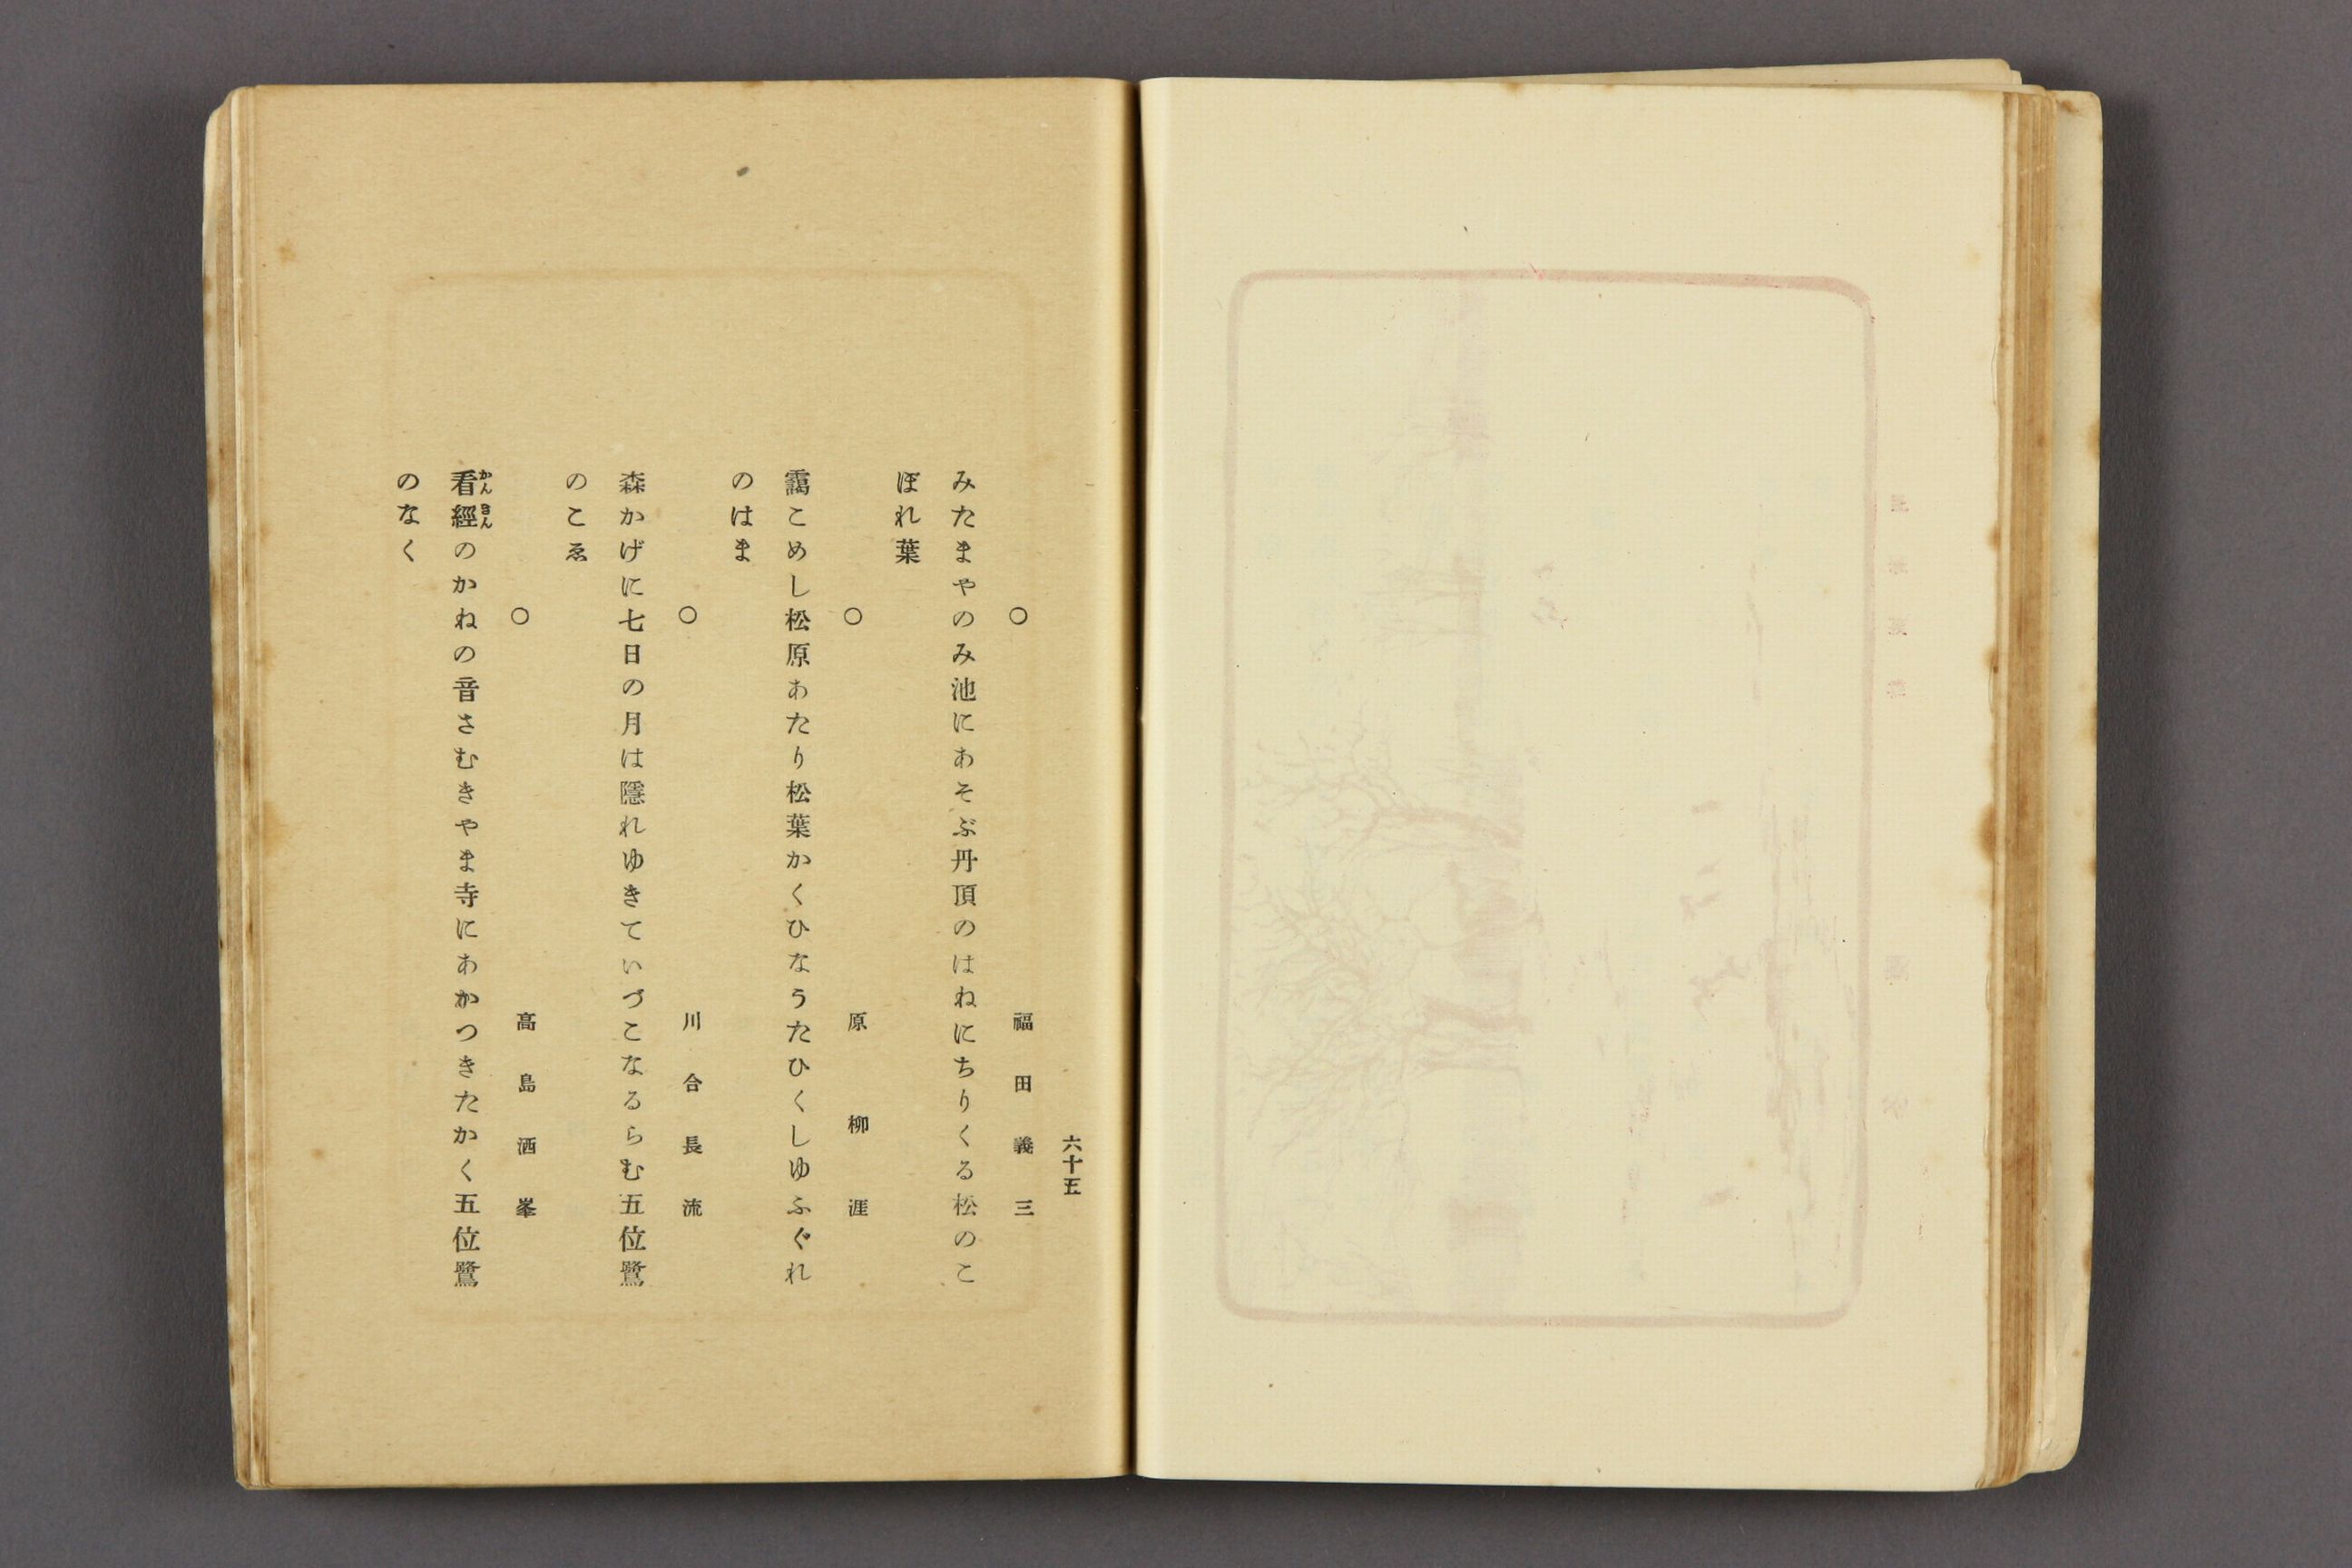 六十五
○ 福田義三
みたまやのみ池にあそぶ丹頂のはねにちりくる松のこ
ぼれ葉
○ 原柳涯
靄こめし松原あたり松葉かくひなうたひくしゆふぐれ
のはま
○ 川合長流
森かげに七日の月は隱れゆきていづこなるらむ五位鷺
のこゑ
○ 高島酒峯
看經のかねの音さむきやま寺にあかつきたかく五位鷺
かんきん
のなく